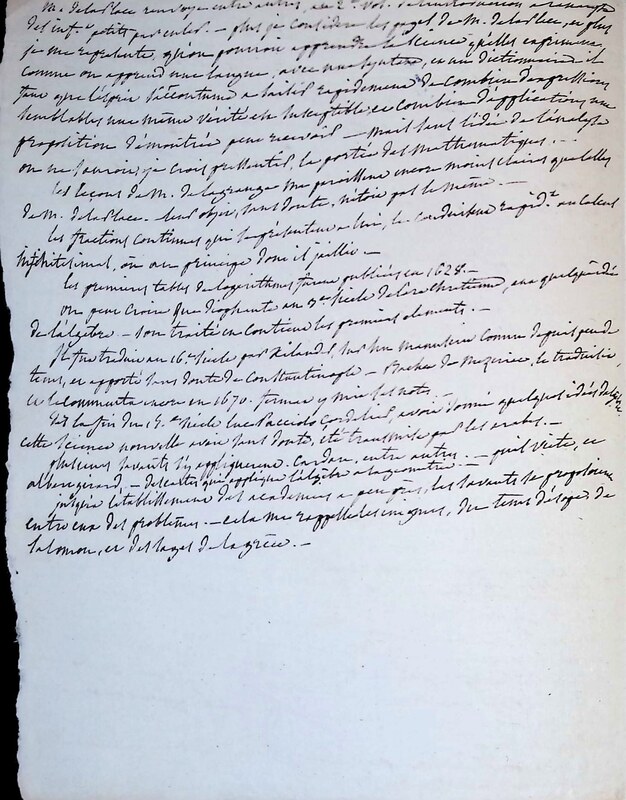 M. de la Place renvoye entre autres, au 2.e vol. de
des inf.t petits par euler. – plus je considere les pages de M. de la Place, et plus
je me represente, qu'on pourroit apprendre la science qu'elles expriment,
comme on apprend une langue, avec une syntaxe, et un dictionnaire. il
faut que l'esprit s'accoutume a saisir rapidement de combien d'expressions
semblables une même verité est susceptible, et combien d'applications une
proposition démontrée peut recevoir – mais sans l'idée de l'analyse
on ne sauroit, je crois pressentir, la portée des mathematiques. –
les leçons de M. de la grange me paroissent encore moins claires que celles
de M. de la Place. leur objet, sans doute, n'etoit pas le même. –
les fractions continues qui se présentent a lui, le conduisent rapid.t au calcul
infinitesimal, ou au principe dont il jaillit –
les premieres tables de logarithmes furent publiées en 1628. –
on peut croire que diophante au siècle de l'ere chretienne, eut quelqu'idée
de l'algebre – son traité en contient les premiers elements. –
Il fut traduit au 16.e siècle par Xilandre, sur un manuscrit connu depuis peu de
tems, et apporté sans doute de Constantinople – Bachet de Meziriac, le traduisit,
et le commenta encore en 1670. fermat y mit ses notes. –
Sur la fin du 15.e siècle Luc Pacciolo Cordelier, avoit donné quelques idées d'algebre.
cette science nouvelle avoit sans doute, été transmise par les arabes. –
plusieurs savants s'y appliquerent. Cardan, entre autres. – puis viete, et
albert girard, – descartes qui applique l'algebre a la géometrie. –
jusqu'a l'établissement des academies a peu près, les savants se proposoient
entre eux des problêmes. – cela me rappelle les enigmes, du tems d'esope de
Salomon, et des sages de la grèce. –